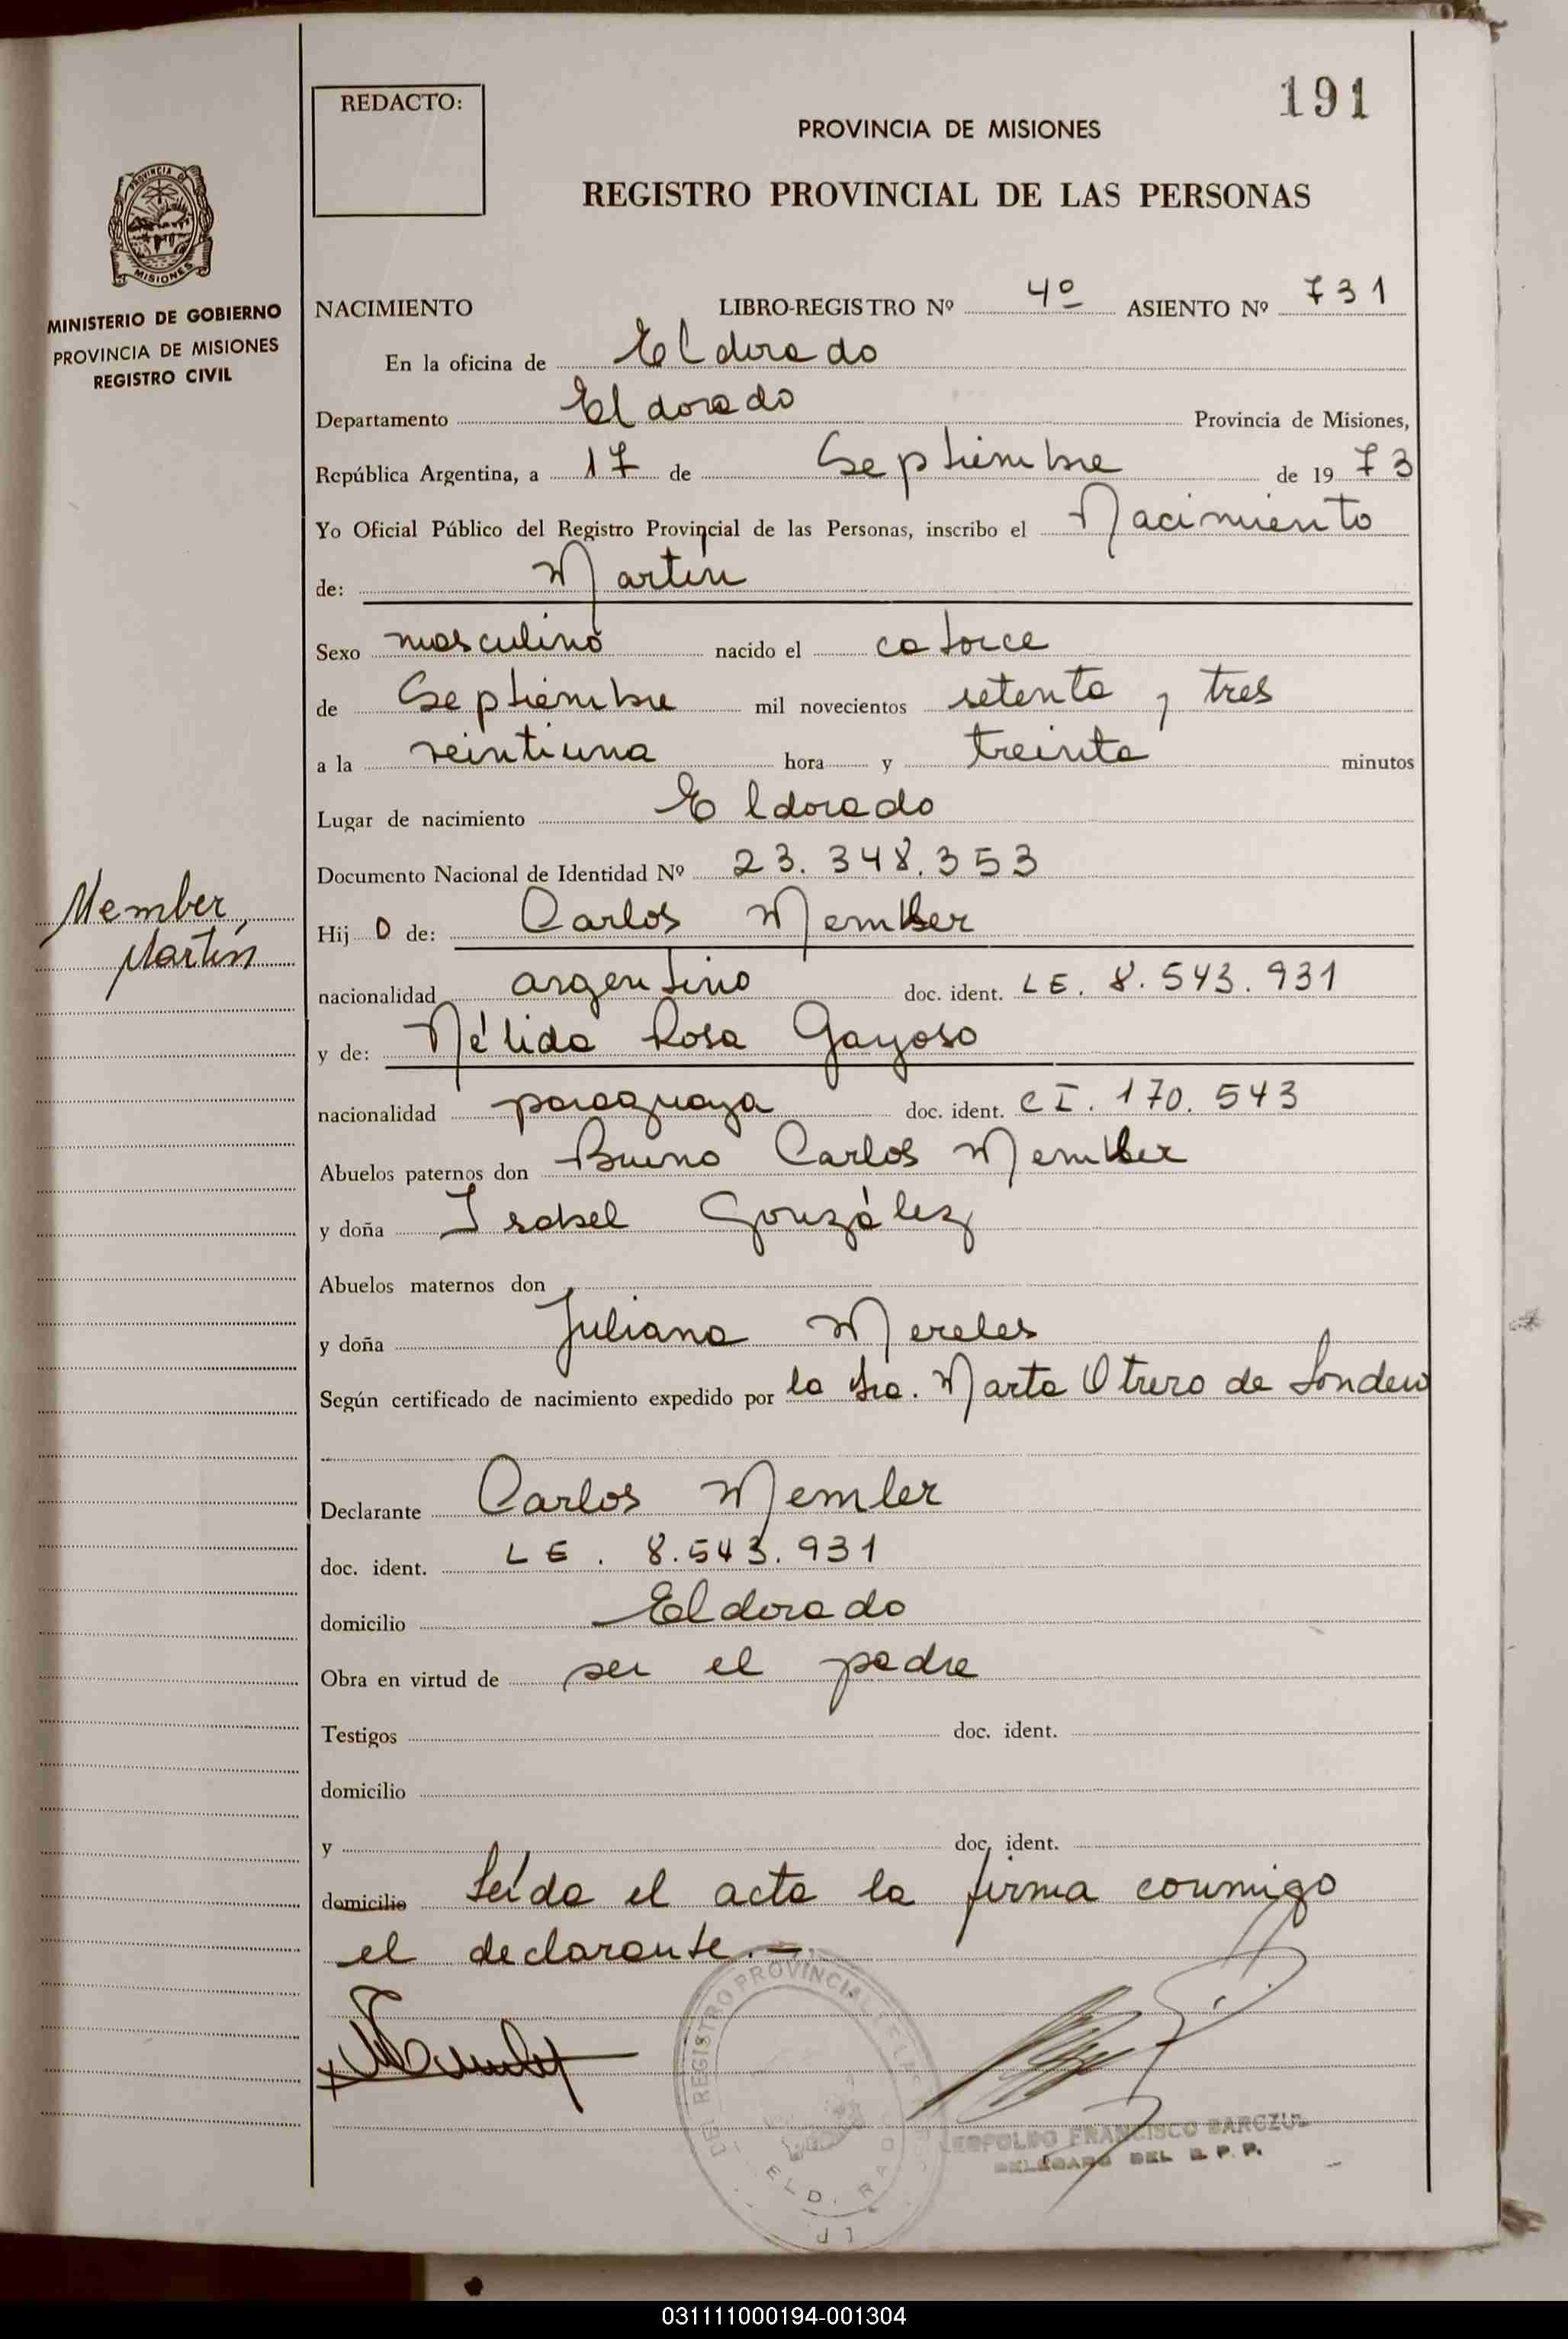 191
REDACTO:
PROVINCIA DE MISIONES
REGISTRO PROVINCIAL DE LAS PERSONAS
PROVINCIA DE
MISIONES
MINISTERIO DE GOBIERNO
PROVINCIA DE MISIONES
REGISTRO CIVIL
NACIMIENTO LIBRO-REGISTRO Nº 4º ASIENTO Nº 731
En la oficina de Eldorado
Departamento Eldorado Provincia de Misiones,
República Argentina, a 17 de Septiembre de 1973
Yo Oficial Público del Registro Provincial de las Personas, inscribo el Nacimiento
de: Martin
Sexo masculino nacido el catorce
de Septiembre mil novecientos setenta y tres
a la veintiuna hora y treinta minutos
Lugar de nacimiento Eldorado
Documento Nacional de Identidad Nº 23.348.353
Member,
Martín
Hijo de: Carlos Member
nacionalidad argentino doc. ident. LE. 8.543.931
y de: Nélida Rosa Gayoso
nacionalidad paraguaya doc. ident. CI. 170.543
Abuelos paternos don Bruno Carlos Member
y doña Isabel González
Abuelos maternos don
y doña Juliana Mereles
Según certificado de nacimiento expedido por la Sra. Marta Otrero de
Declarante Carlos Member
doc. ident. LE. 8.543.931
domicilio Eldorado
Obra en virtud de ser el padre
Testigos doc. ident.
domicilio
y doc. ident.
domicilio Leída el acta la firma conmigo
el declarante.-
DEL REGISTRO PROVINCIAL DE
LEOPOLDO FRANCISCO BARCZUK
DELEGADO DEL R. P. P.
031111000194-001304